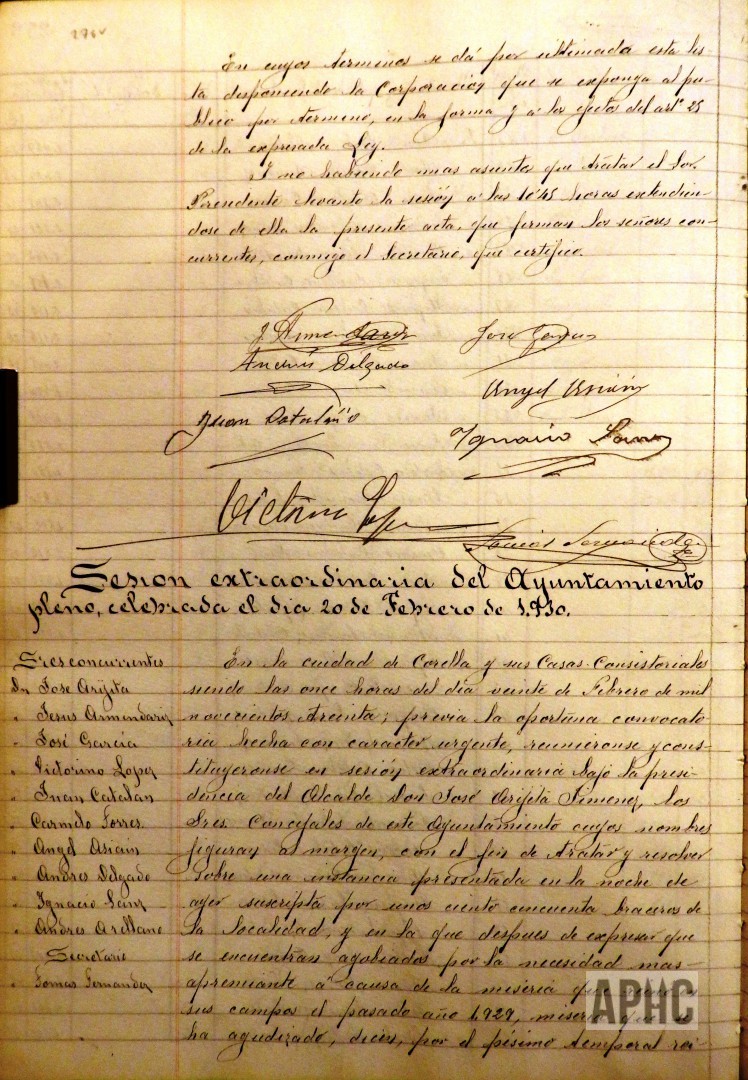 En cuyos terminos se dá por ultimada esta lis-
ta disponiendo la Corporación que se exponga al pu-
blico por termino, en la forma y a los efectos del artº 25
de la expresada Ley.
Y no habiendo mas asuntos que tratar el Sor.
Presidente levanto la sesión a las 10'45 horas extendien-
dose de ella la presente acta, que firman los señores con-
currentes, conmigo el Secretario, que certifico.
J. Armendariz José García
Andrés Delgado
Angel Asiain
Juan Catalán
Ignacio Sanz
Victorino Lopez
Tomás Fernandez
Sesion extraordinaria del Ayuntamiento
pleno, celebrada el dia 20 de Febrero de 1.930.
Sres concurrentes
Dn José Arijita
" Jesus Armendariz
" José García
" Victorino Lopez
" Juan Catalan
" Carmelo Torres
" Angel Asiain
" Andres Delgado
" Ignacio Sanz
" Andres Arellano
Secretario
" Tomas Fernandez
En la ciudad de Corella y sus Casas Consistoriales
siendo las once horas del día veinte de Febrero de mil
novecientos treinta; previa la oportuna convocato
ria hecha con caracter urgente, reunieronse y cons-
tituyeronse en sesión extraordinaria bajo la presi-
dencia del Alcalde Don José Arijita Jimenez, los
Sres. Concejales de este Ayuntamiento cuyos nombres
figuran al margen, con el fin de tratar y resolver
sobre una instancia presentada en la noche de
ayer suscripta por unos ciento cincuenta braceros de
la localidad, y en la que despues de expresar que
se encuentran agobiados por la necesidad mas
apremiante a causa de la miseria que
sus campos el pasado año 1.929, miseria que se
ha agudizado, dicen, por el pésimo temporal rei-
APHC